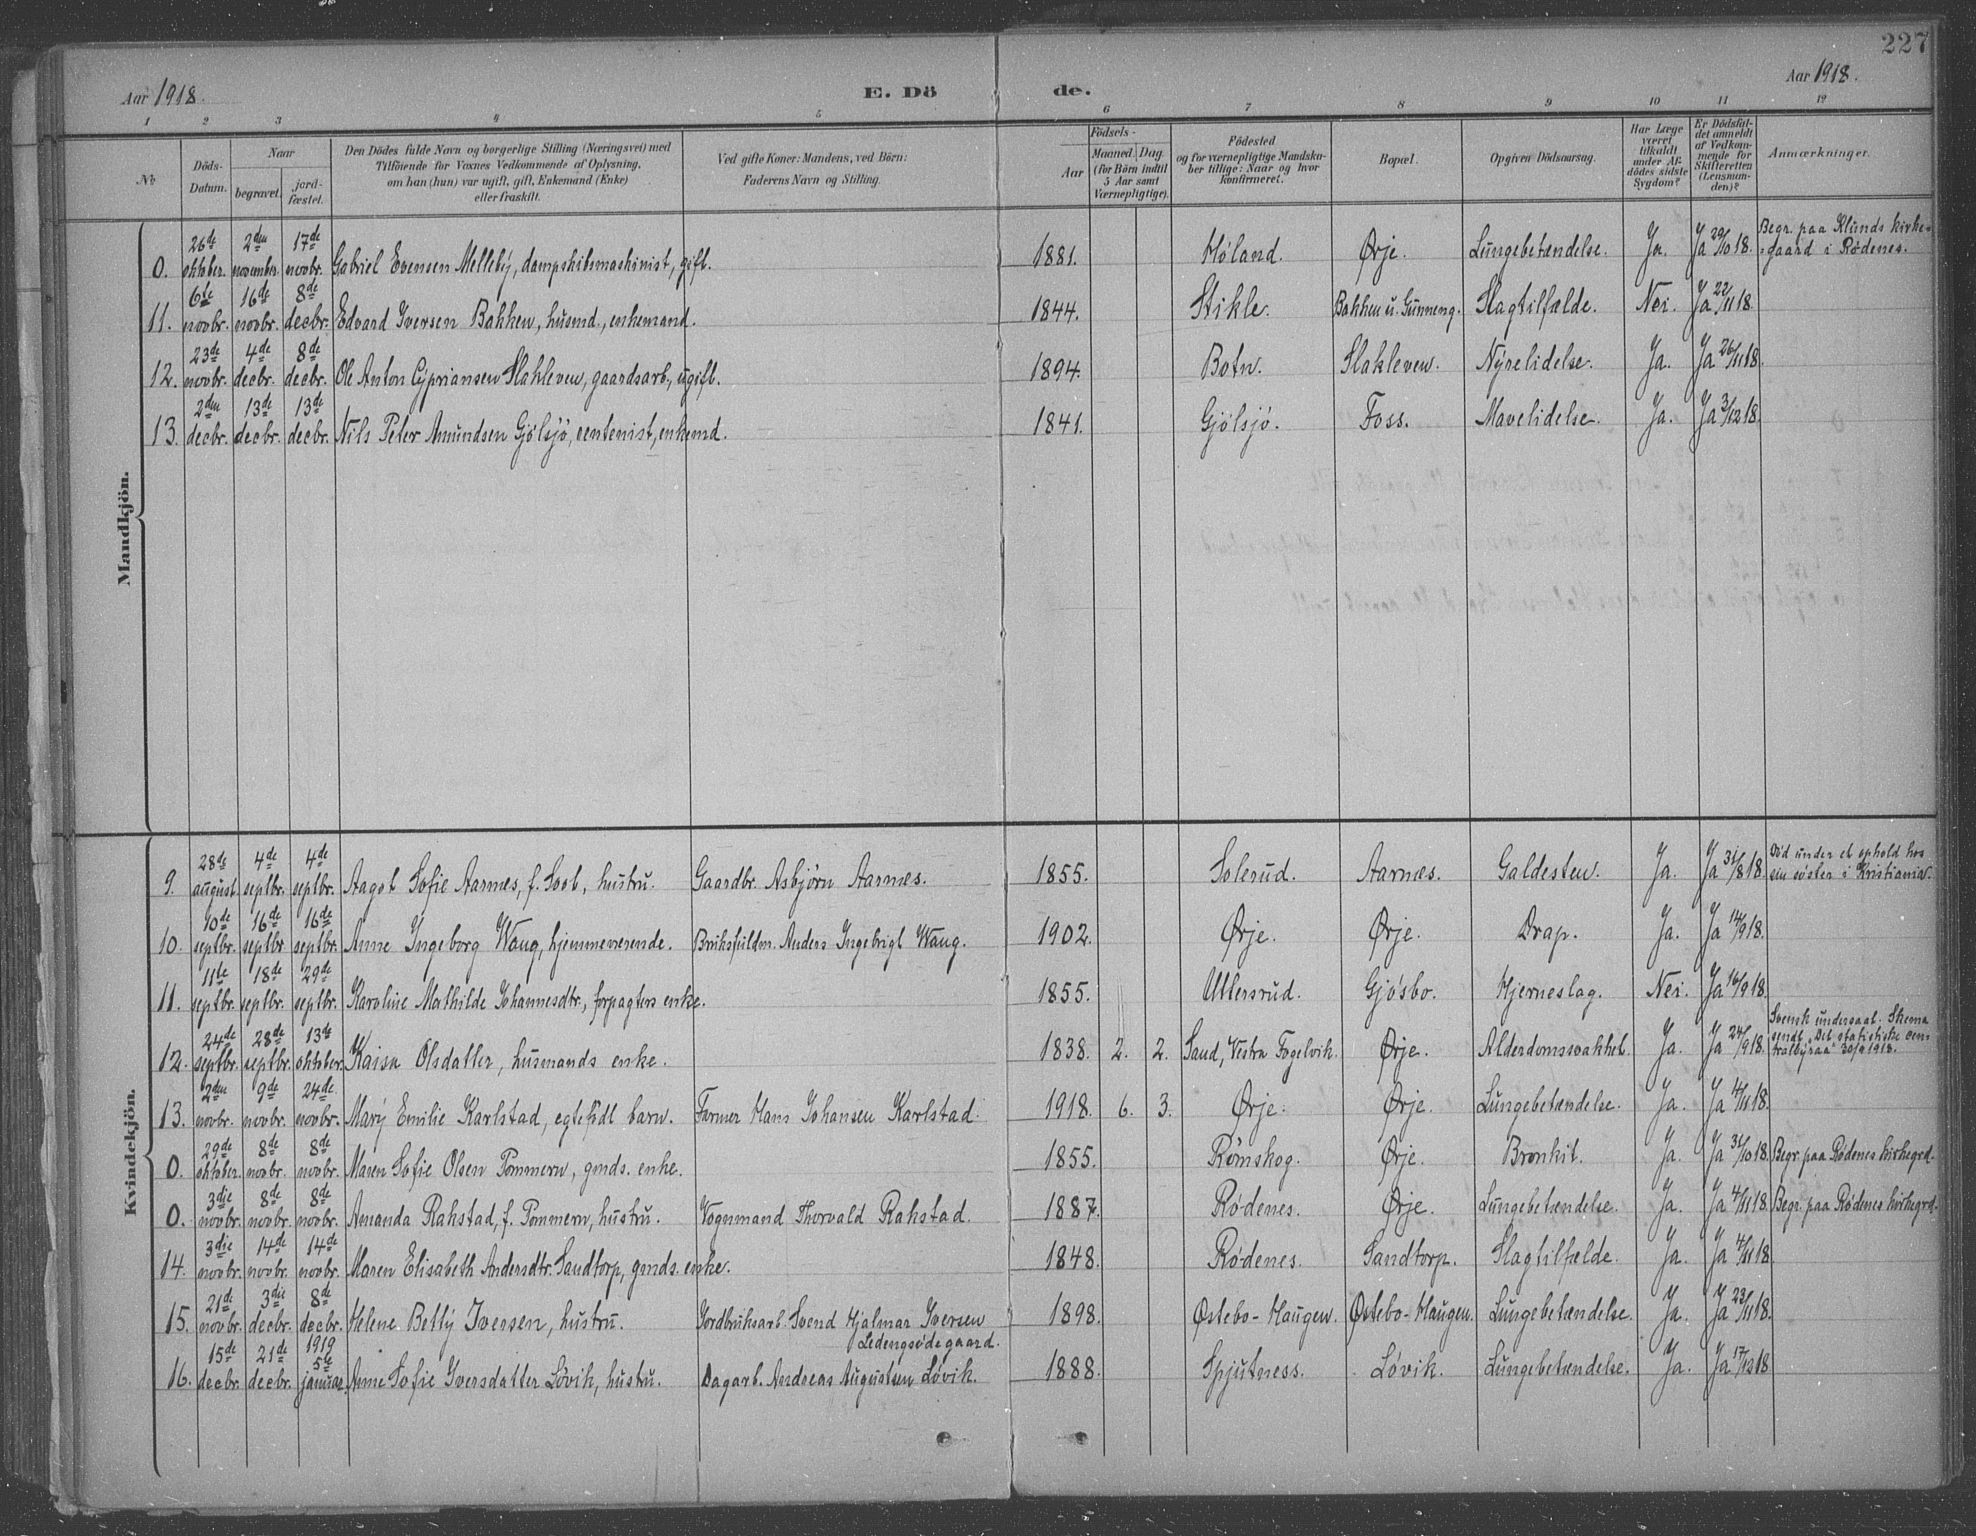 227
Aar 1918.
E. Döde.
Aar 1918.
1 2 3 4 5 6 7 8 9 10 11 12
No.
Döds-Datum.
Naar
begravet.
jordfæstet.
Den Dödes fulde Navn og borgerlige Stilling (Næringsvei) med
Tilföiende for Voxnes Vedkommende af Oplysning,
om han (hun) var ugift, gift, Enkemand (Enke)
eller fraskilt.
Ved gifte Koner: Mandens, ved Börn:
Faderens Navn og Stilling.
Födsels-
Aar
Maaned. Dag.
(for Börn indtil
5 Aar samt
Værnepligtige).
Födested
og for værnepligtige Mandskaber tillige: Naar og hvor
konfirmeret.
Bopæl.
Opgiven Dödsaarsag.
Har Læge
været
tilkaldt
under Afdödes sidste
Sygdom?
Er Dödsfaldet anmeldt
af Vedkommende for
Skifteretten
(Lensmanden)?
Anmærkninger.
Mandkjön.
0. 26de oktober. 2den november. 17de novbr. Gabriel Evensen Melleby, dampskibsmaskinist, gift. 1881. Høland. Ørje. Lungebetændelse. Ja. Ja 29/10 18. Begr. paa Klunds kirke-
=gaard i Rødenes.
11. 6te novbr. 16de novbr. 8de decbr. Edvard Iversen Bakken, husmd., enkemand. 1844. Stikle. Bakken u. Gunneng. Slagtilfælde. Nei. Ja 22/11 18.
12. 23de novbr. 4de decbr. 8de decbr. Ole Anton Cypriansen Slakleven, gaardsarb., ugift. 1894. Botn. Slakleven. Nyrelidelse. Ja. Ja 26/11 18.
13. 2den decbr. 13de decbr. 13de decbr. Nils Peter Amundsen Gjølsjø, rentenist, enkemd. 1841. Gjølsjø. Foss. Mavelidelse. Ja. Ja 3/12 18.
Kvindekjön.
9. 28de august. 4de septbr. 4de septbr. Aagot Sofie Aarnes, f. Soot, hustru. Gaardbr. Asbjørn Aarnes. 1855. Solerud. Aarnes. Galdesten. Ja. Ja 31/8 18. Død under et ophold hos
sin søster i Kristiania.
10. 10de septbr. 16de septbr. 16de septbr. Anne Ingeborg Waug, hjemmeværende. Bruksfuldm. Anders Ingebrigt Waug. 1902. Ørje. Ørje. Drap. Ja. Ja 14/9 18.
11. 11te septbr. 18de septbr. 29de septbr. Karoline Mathilde Johannesdtr., forpagters enke. 1855. Ullersrud. Gjøsbo. Hjerneslag. Nei. Ja 16/9 18.
12. 24de septbr. 28de septbr. 13de oktober. Kaisa Olsdatter, husmands enke. 1838. 2. 2. Sand, Vestra Fogelvik. Ørje. Alderdomssvakhet. Ja. Ja 24/9 18. Svensk undersaat. Skema
sendt „Det statistiske cen-
tralbyraa" 30/9 1918.
13. 2den novbr. 9de novbr. 24de novbr. Mary Emilie Karlstad, egtefødt barn. Farmer Hans Johansen Karlstad. 1918. 6. 3. Ørje. Ørje. Lungebetændelse. Ja. Ja 4/11 18.
0. 29de oktober. 8de novbr. 8de novbr. Maren Sofie Olsen Pommern, gmds. enke. 1855. Rømskog. Ørje. Bronkit. Ja. Ja 31/10 18. Begr. paa Rødenes kirkegrd.
0. 3die novbr. 8de novbr. 8de novbr. Amanda Rakstad, f. Pommern, hustru. Vognmand Thorvald Rakstad. 1887. Rødenes. Ørje. Lungebetændelse. Ja. Ja 4/11 18. Begr. paa Rødenes kirkegrd.
14. 3die novbr. 14de novbr. 14de novbr. Maren Elisabeth Andersdtr. Sandtorp, gmds. enke. 1848. Rødenes. Sandtorp. Slagtilfælde. Ja. Ja 4/11 18.
15. 21de novbr. 3die decbr. 8de decbr. Helene Betty Iversen, hustru. Jordbruksarb. Svend Hjalmar Iversen
Ledengsødegaard. 1898. Østebo-Haugen. Østebo-Haugen. Lungebetændelse. Ja. Ja 23/11 18.
16. 15de decbr. 21de decbr. 1919 5te januar. Anne Sofie Iversdatter Løvik, hustru. Dagarb. Andreas Augustsen Løvik. 1888. Spjutness. Løvik. Lungebetændelse. Ja. Ja 17/12 18.